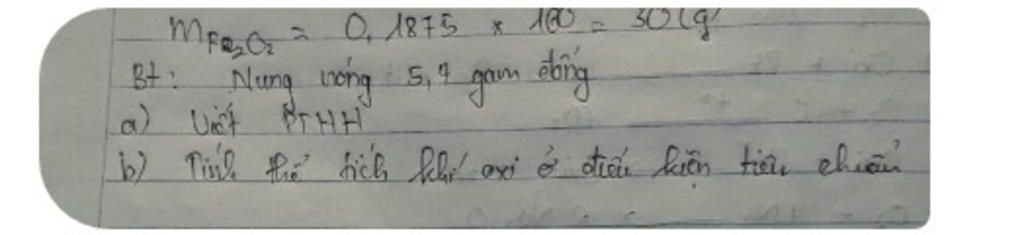 mFe₂O₃ = 0,1875 * 160 = 30(g)
Bt: Nung nóng 5,4 gam đồng
a) Viết PTHH
b) Tính thể tích khí oxi ở điều kiện tiêu chuẩn